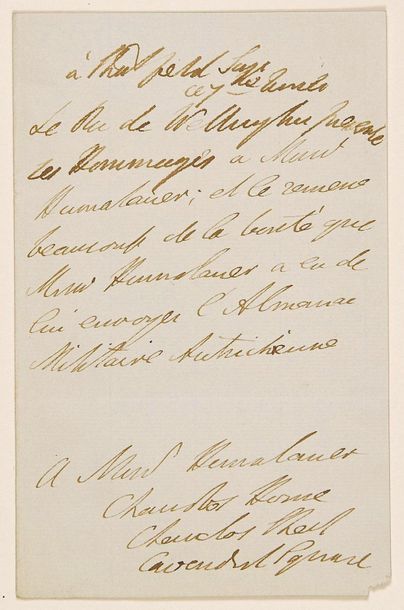 à
ce 7
Le Duc de Wellington presente
ses Hommages à Monsr
Hummelauer; et le remercie
beaucoup de la bonté que
Monsr Hummelauer a eu de
lui envoyer l'Almanac
Militaire Autrichienne
A Monsr Hummelauer
Chandos House
Chandos Street
Cavendish Square